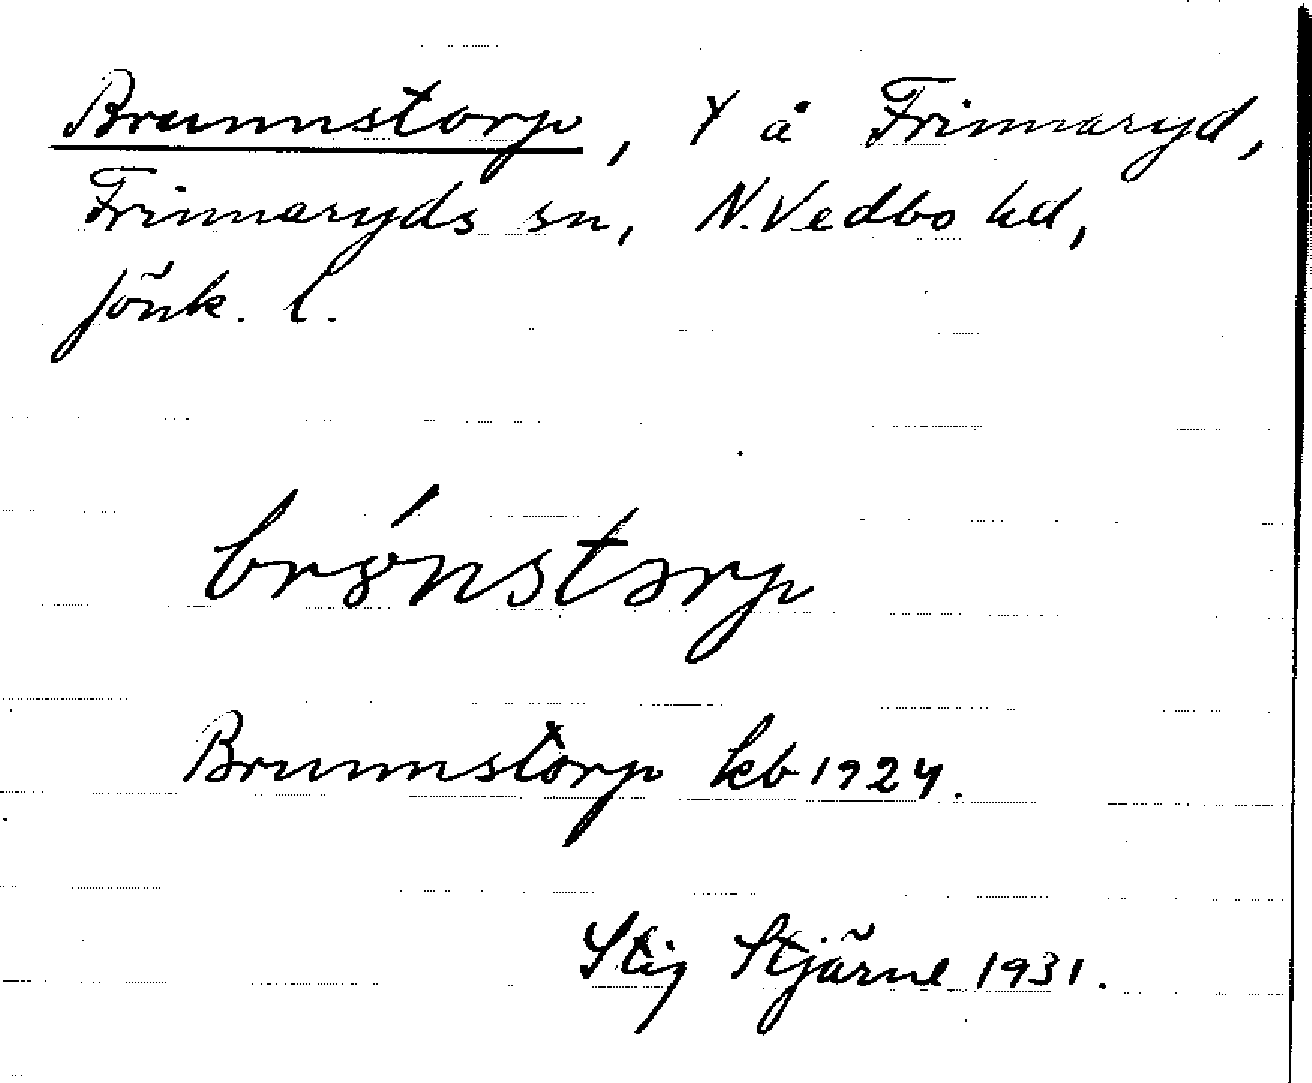 Brunnstorp, Y å Frinnaryd,
Frinnaryds sn, N.Vedbo hd,
Jönk. l.
brónstɔrp
Brunnstorp kb 1924.
Stig Stjärne 1931.